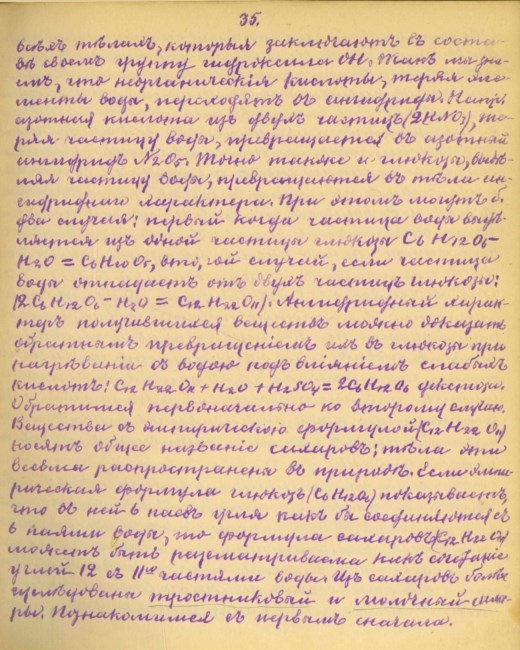 35.
всѣхъ тѣламъ, которыя заключаютъ въ соста-
вѣ своемъ группу гидроксила OH. Такъ мы зна-
емъ, что неорганическія кислоты, теряя эле-
менты воды, переходятъ въ ангидриды. Напр.
азотная кислота изъ двухъ частицъ (2HNO3), те-
ряя частицу воды, превращается въ азотный
ангидридъ N2O5. Точно также и глюкозы, выдѣ-
ляя частицу воды, превращаются въ тѣла ан-
гидриднаго характера. При этомъ могутъ б.
два случая: первый когда частица воды выдѣ-
ляется изъ одной частицы глюкозы C6H12O6-
H2O = C6H10O5, вто-ой случай, если частица
воды отпадаетъ отъ двухъ частицъ глюкозы:
(2C6H12O6 - H2O = C12H22O11). Ангидридный харак-
теръ получившихся веществъ можно доказать
обратнымъ превращеніемъ ихъ въ глюкозы при
нагрѣваніи съ водою подъ вліяніемъ слабыхъ
кислотъ: C12H22O11 + H2O + H2SO4 = 2C6H12O6 декстроза.
Обратимся первоначально ко второму случаю.
Вещества съ эмпирическою формулой (C12H22O11)
носятъ общее названіе сахаровъ; тѣла эти
весьма распространены въ природѣ. Если эмпи-
рическая формула глюкозъ (C6H12O6) показываетъ,
что въ ней 6 паевъ угля какъ бы соединяются съ
6 паями воды, то формула сахаровъ (C12H22O11)
можетъ быть разсматриваема какъ сочетаніе
углей 12 съ 11ью частями воды. Изъ сахаровъ болѣе
изслѣдованы тростниковый и молочный саха-
ры. Познакомимся съ первымъ сначала.